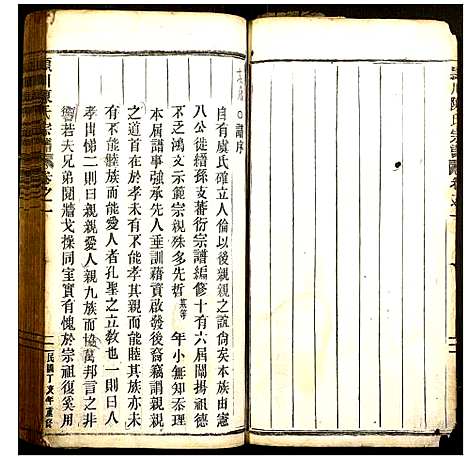 譜序
自有虞氏確立人倫以後親親之說尙矣本族由憲
八公徙縉孫支蕃衍宗譜編修十有六屆闡揚祖德
不乏鴻文示範宗親殊多先哲蕙等年小無知忝理
本屆譜事強承先人垂訓藉資啟發後裔竊謂親親
首在於孝未有不能孝而能親族者其不親族亦未
有不能睦族而能愛人者孔聖之立敎也一則曰人
孝出悌二則曰親親愛人親九族而協萬邦言之非
若夫兄弟鬩牆戈操同室實有愧於宗祖復奚用
潁川陳氏宗譜 卷之一
民國丁亥年重修
潁川陳氏宗譜 卷之一